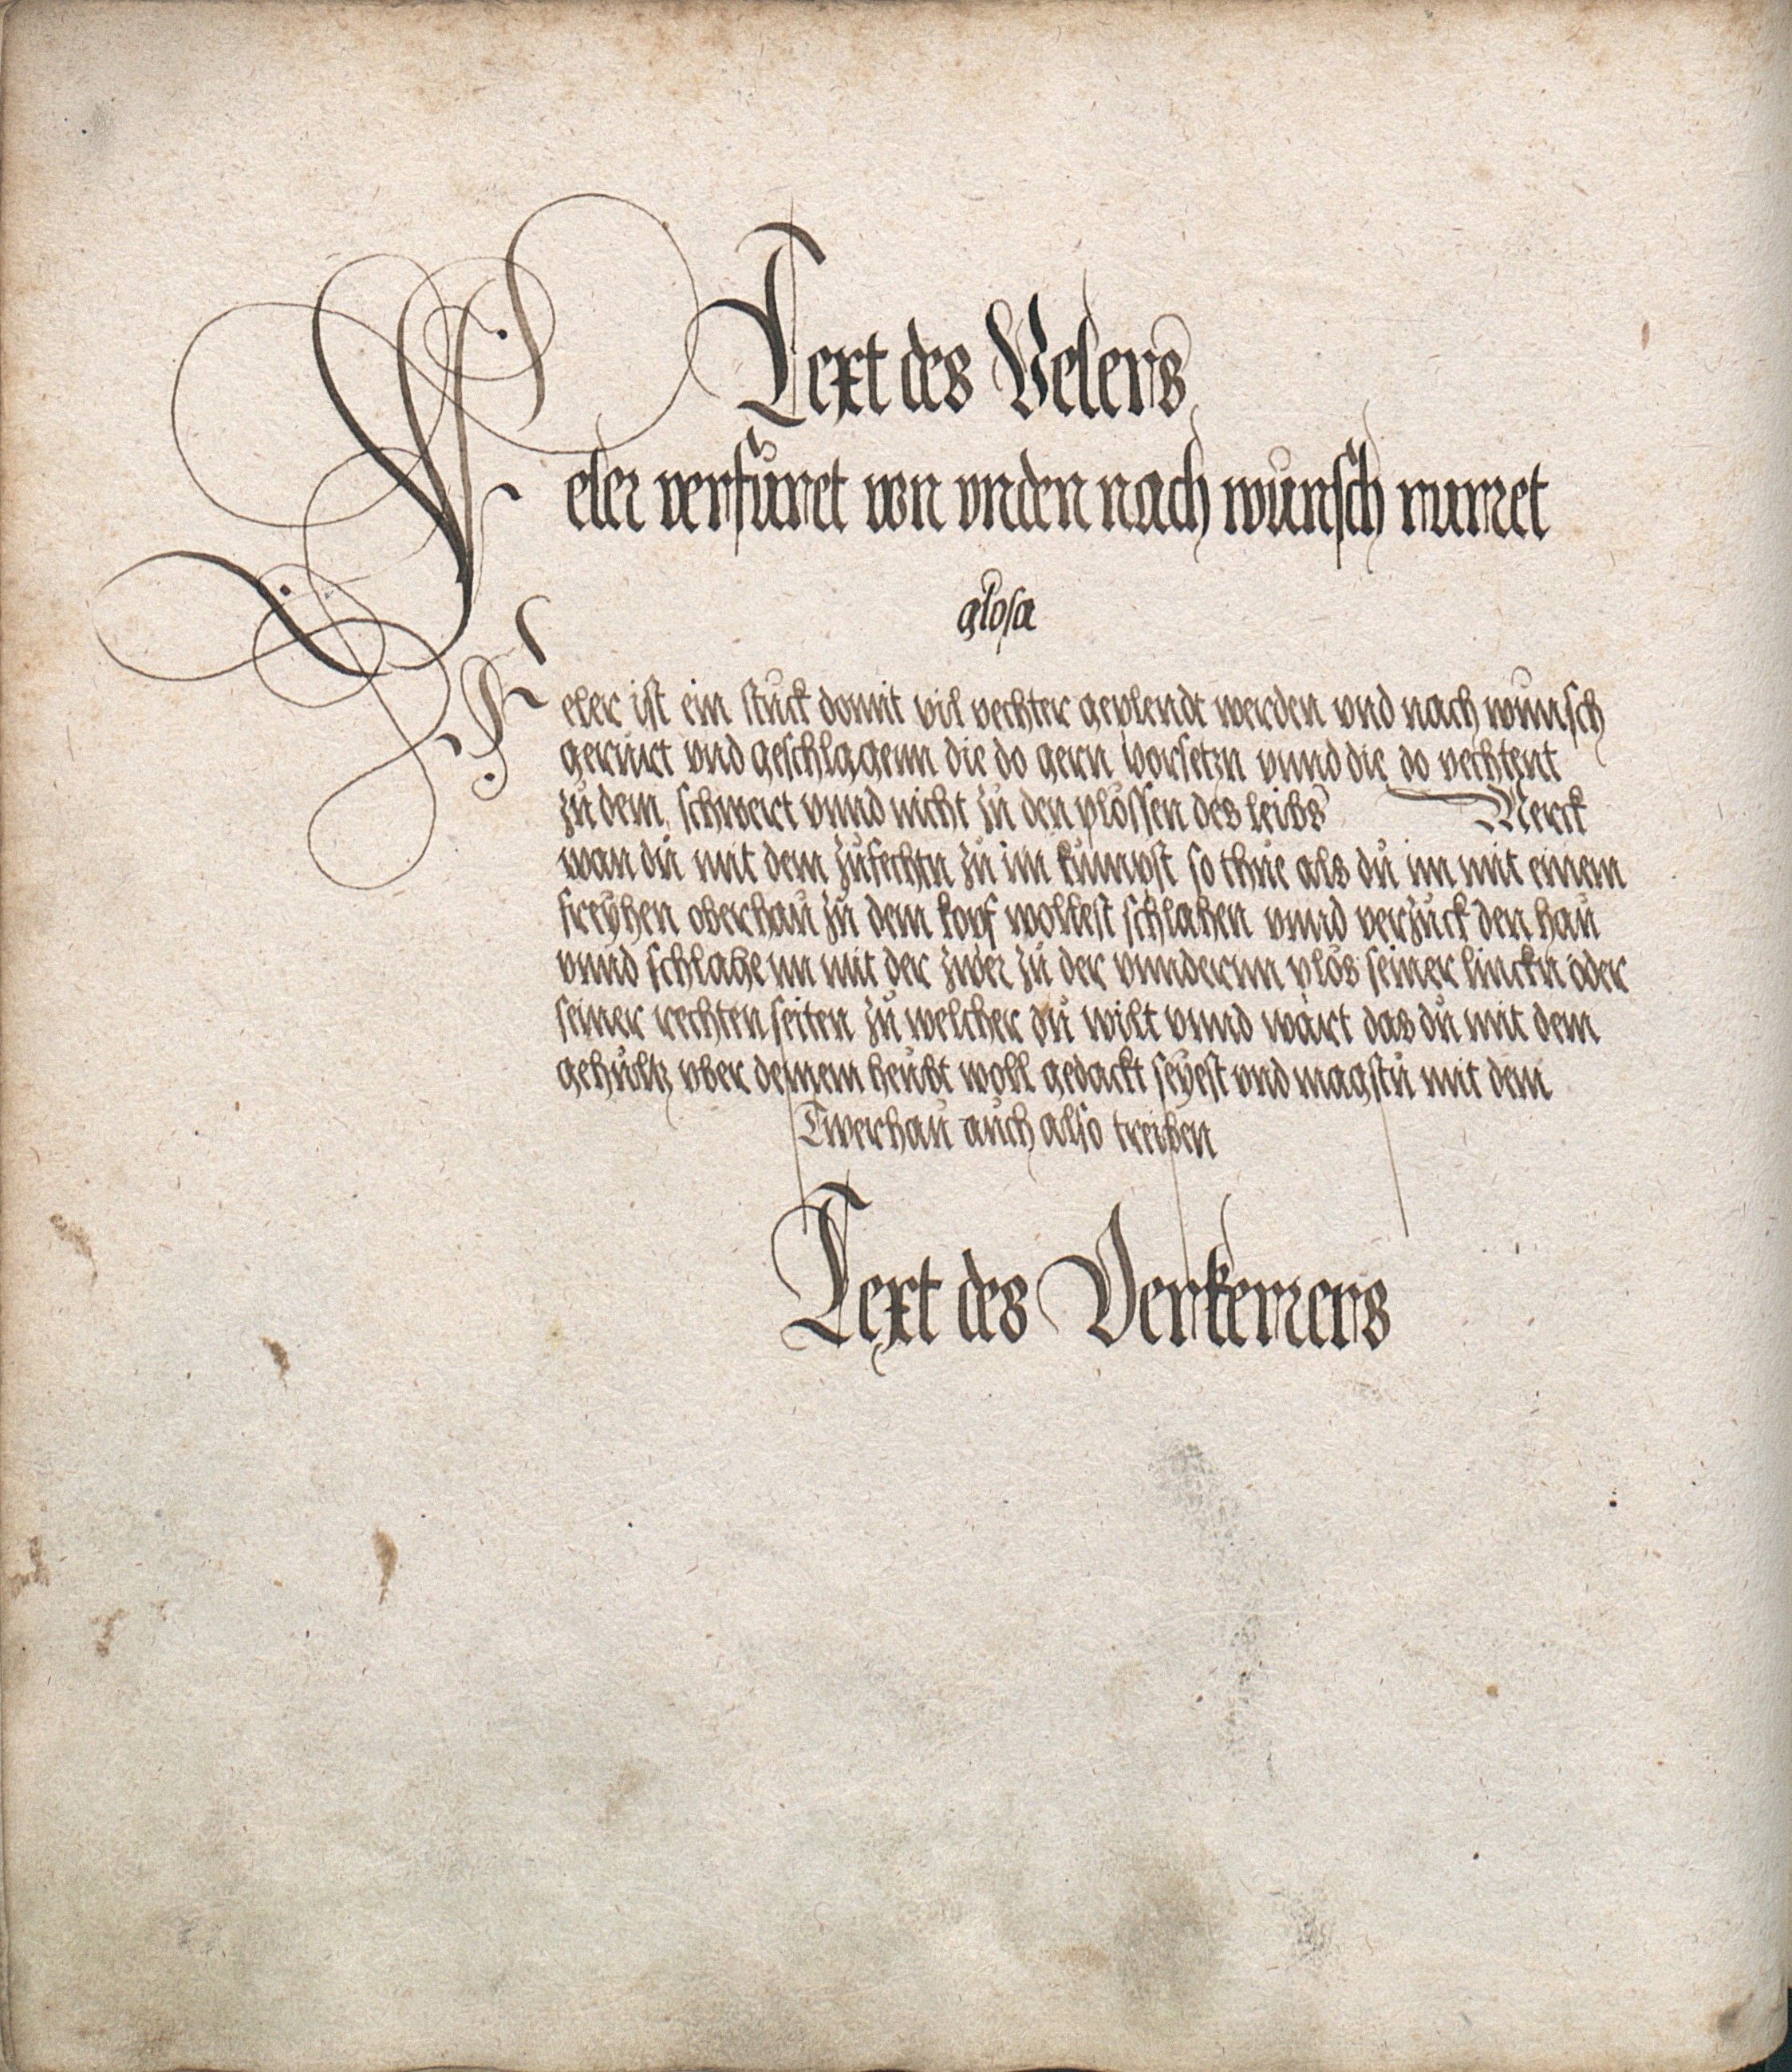 Text des Velers
Veler verfüret von vnden nach wünsch rurret
glosa
Veler ist ein stuck domit vil vechter geplendt werden vnd nach wunsch
gerürt vnd geschlagenn die do gern vorsetzn vnnd die do vechtent
zü dem schwert vnnd nicht zü den plössen des leibs Merck
wan dü mit dem züfechtn zü im kümpst so thüe als dü im mit einem
freÿhen oberhaü zü dem kopf wollest schlahen vnnd verzuck den haü
vnnd schlahe im mit der zwer zü der vnndernn plös seiner linckn oder
seiner rechten seiten zü welcher dü wilt vnnd wart das dü mit dem
gehültz vber deinem heübt woll gedackt seÿest vnd magstü mit dem
Twerhaü aüch also treiben
Text des Verkerrers